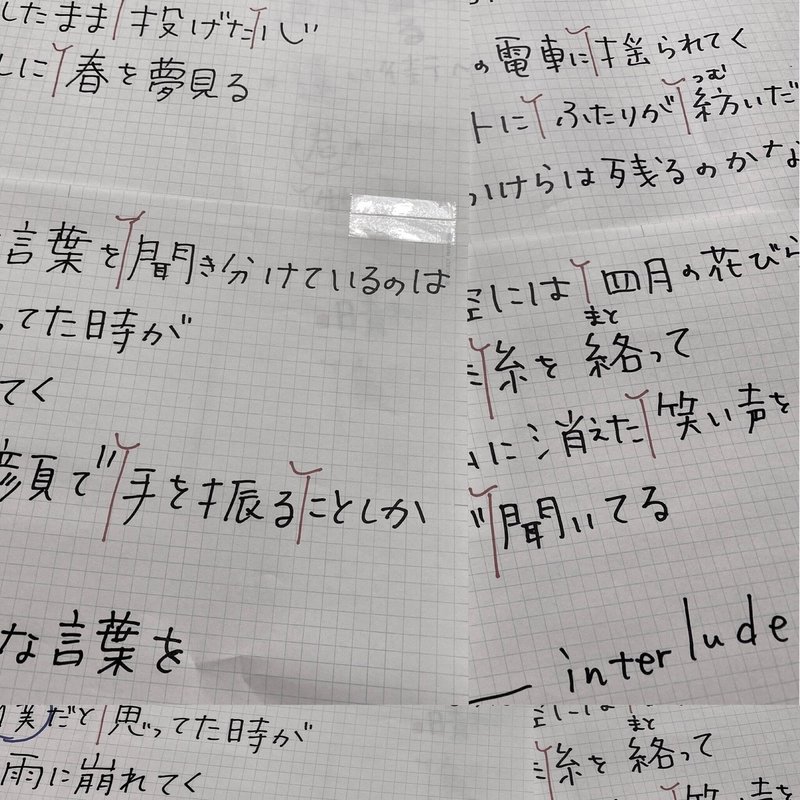 したまま投げたいじ
に春を夢見る
言葉を聞き分けているのは
てた時が
てく
顔で手を振ることしか
な言葉を
僕だと思ってた時が
雨に崩れてく
の電車に揺られてく
トにふたりが紡いだ
つむ
けらは残るのかな
には四月の花びら
糸を絡って
まと
に消えた笑い声を
聞いてる
interlude
には
まと
糸を絡って
笑い声